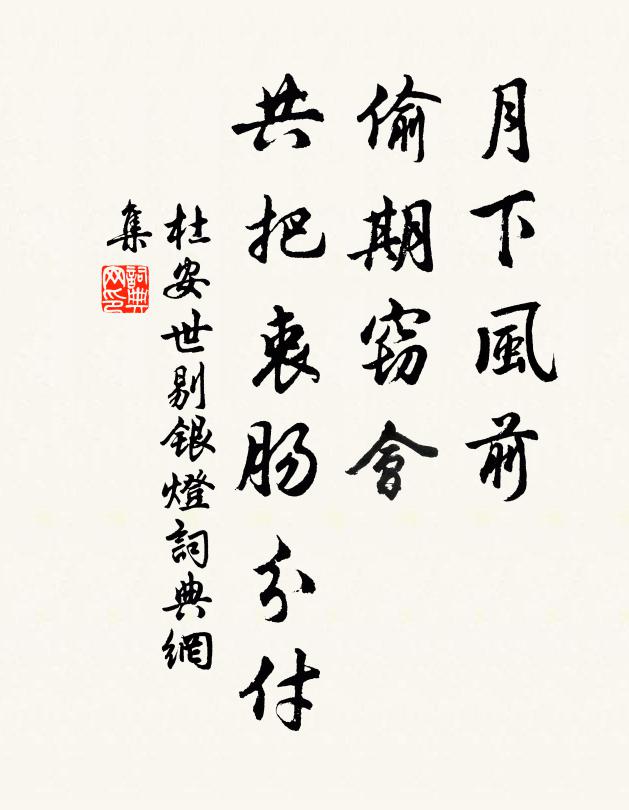 月下風前
偷期窃會
共把衷腸分付
杜安世剔銀燈詞典網
集
詞典
网印